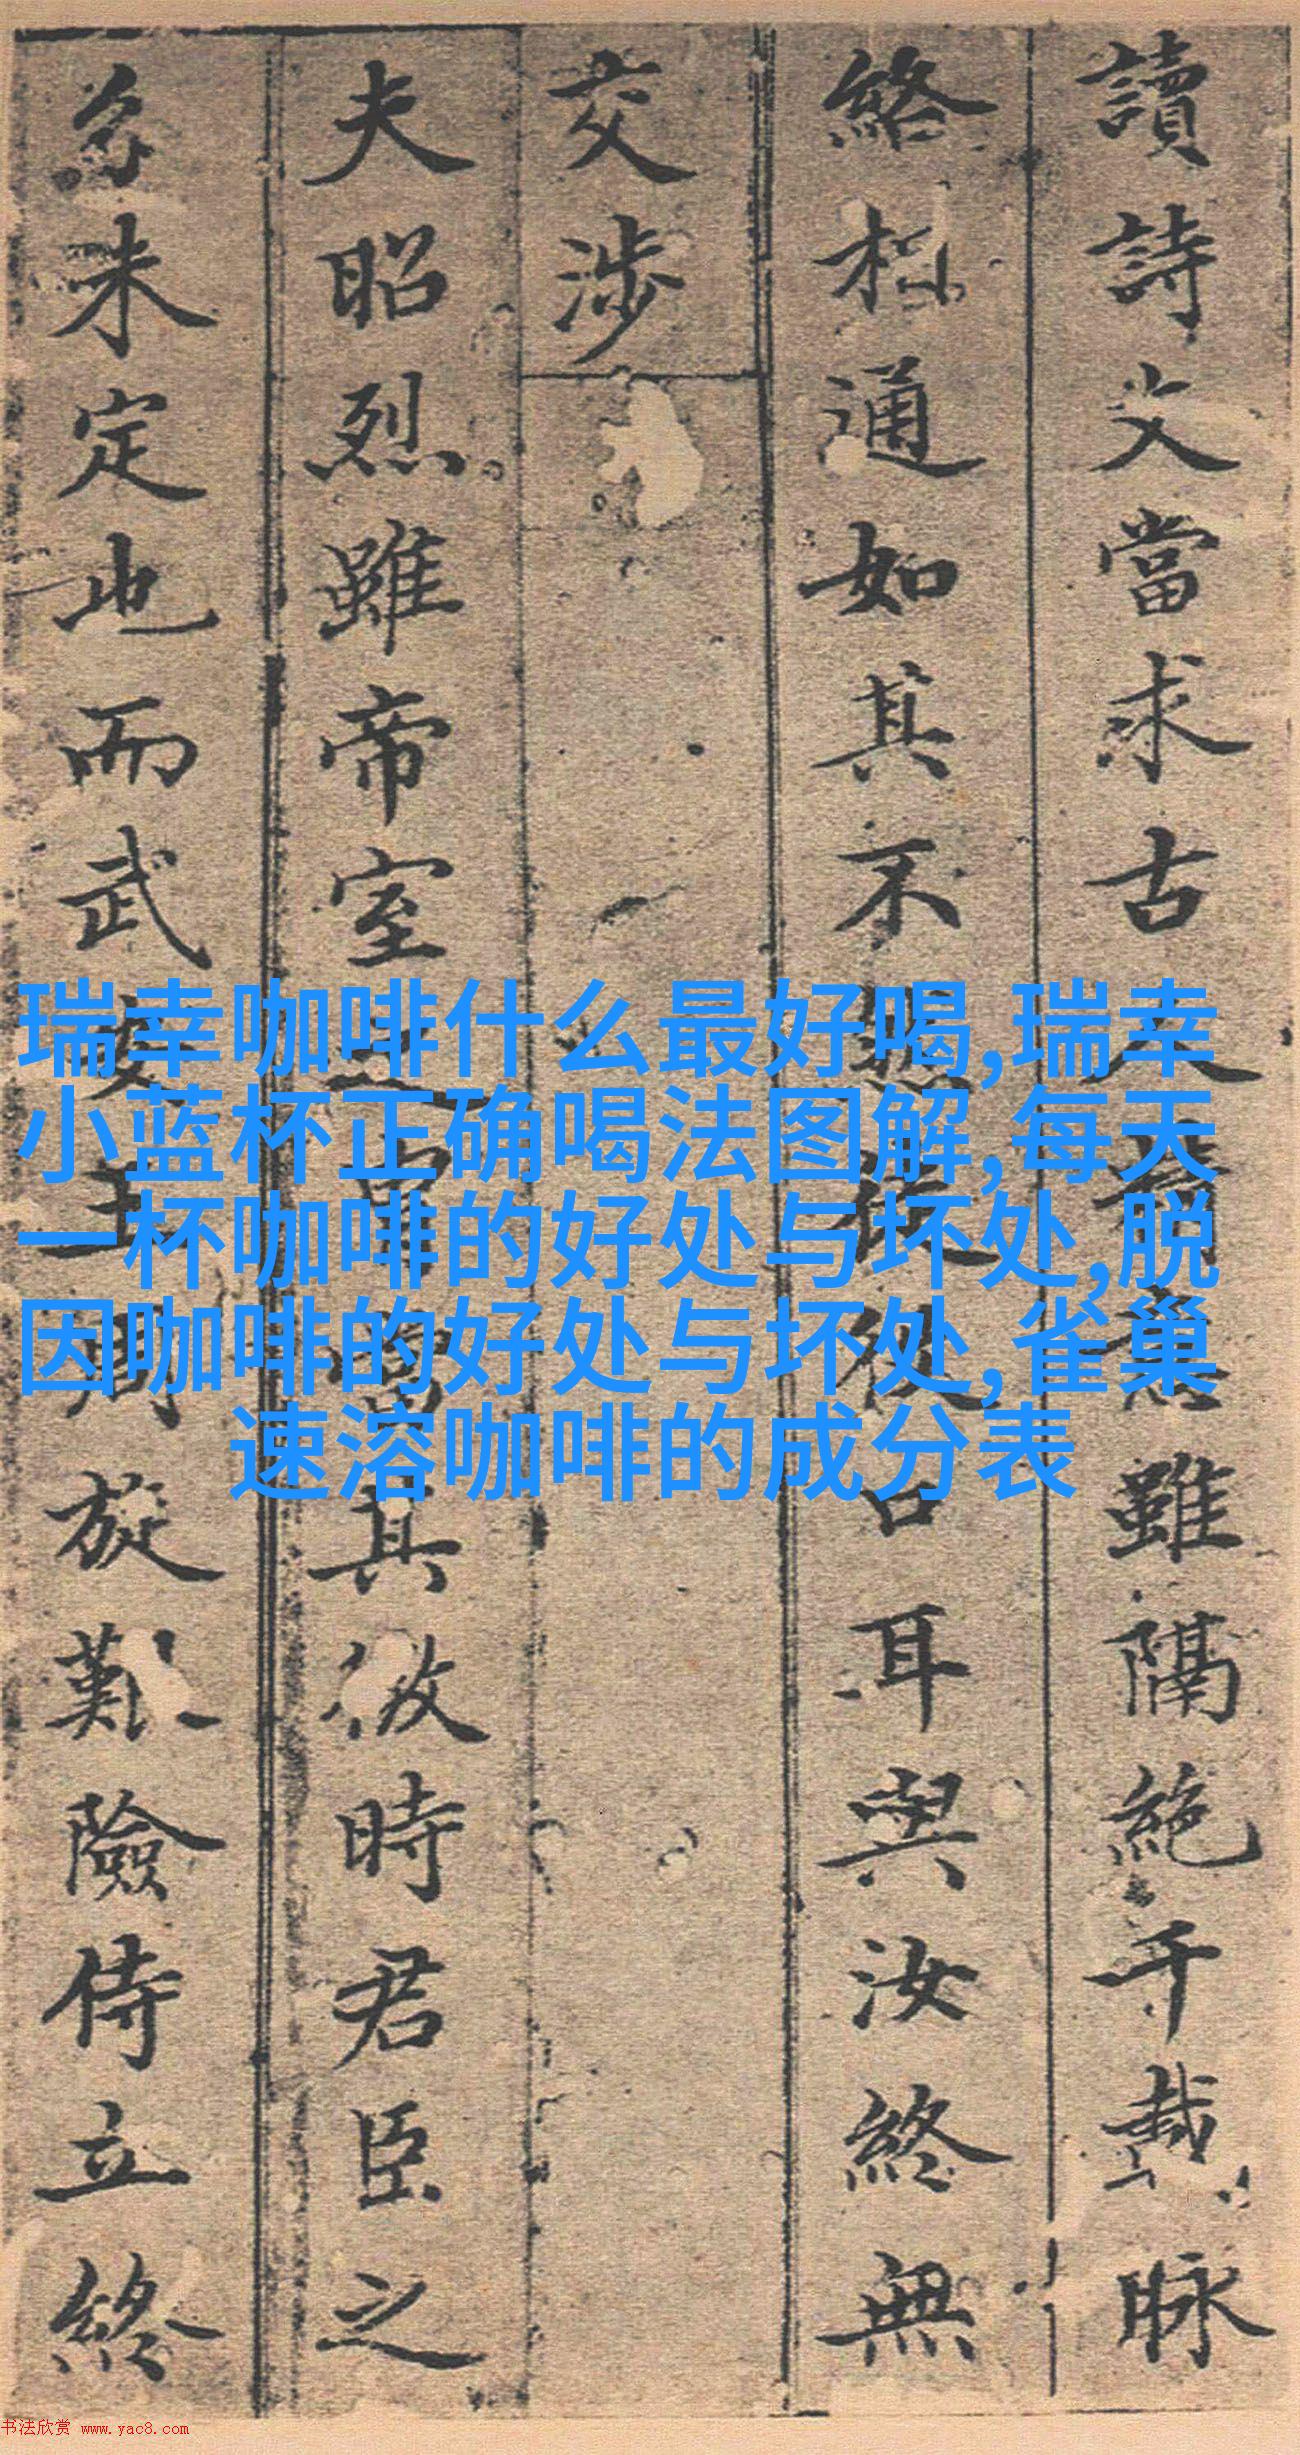 讀詩文當求古人意雖隔絶千載脉
絡相通如其不口耳與汝終無
交涉
夫昭烈雖帝室之其時君臣之
分未定也而武王周旋險侍立終
瑞幸咖啡什么最好喝,瑞幸
小蓝杯正确喝法图解,每天
一杯咖啡的好处与坏处,脱
因咖啡的好处与坏处,雀巢
速溶咖啡的成分表
书法欣赏 www.yac8.com